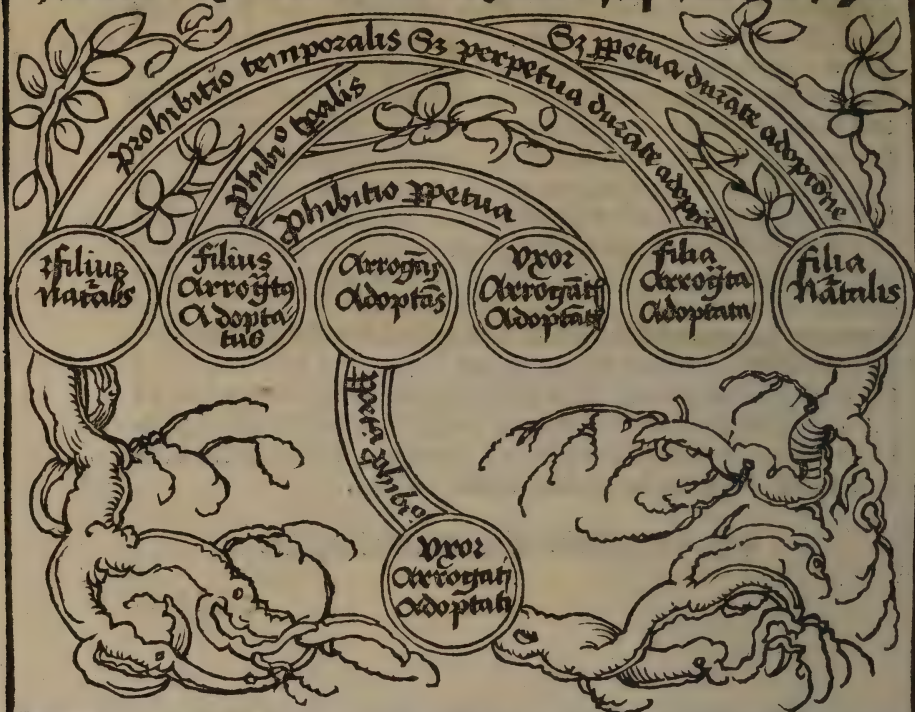 Prohibitio temporalis Sꝫ perpetua durāte adopti
Sꝫ ꝑpetua durāte adoptione
Phibiº tꝑalis
Phibitio ꝑpetua
filius
Natālis
filius
Arrogāt9
Adopta
tus
Arrogās
Adoptās
Vxor
Arrogātꝭ
Adoptātꝭ
filia
Arrogāta
Adoptata
filia
Nātalis
ꝑpetua
Vxor
Arrogati
Adoptati